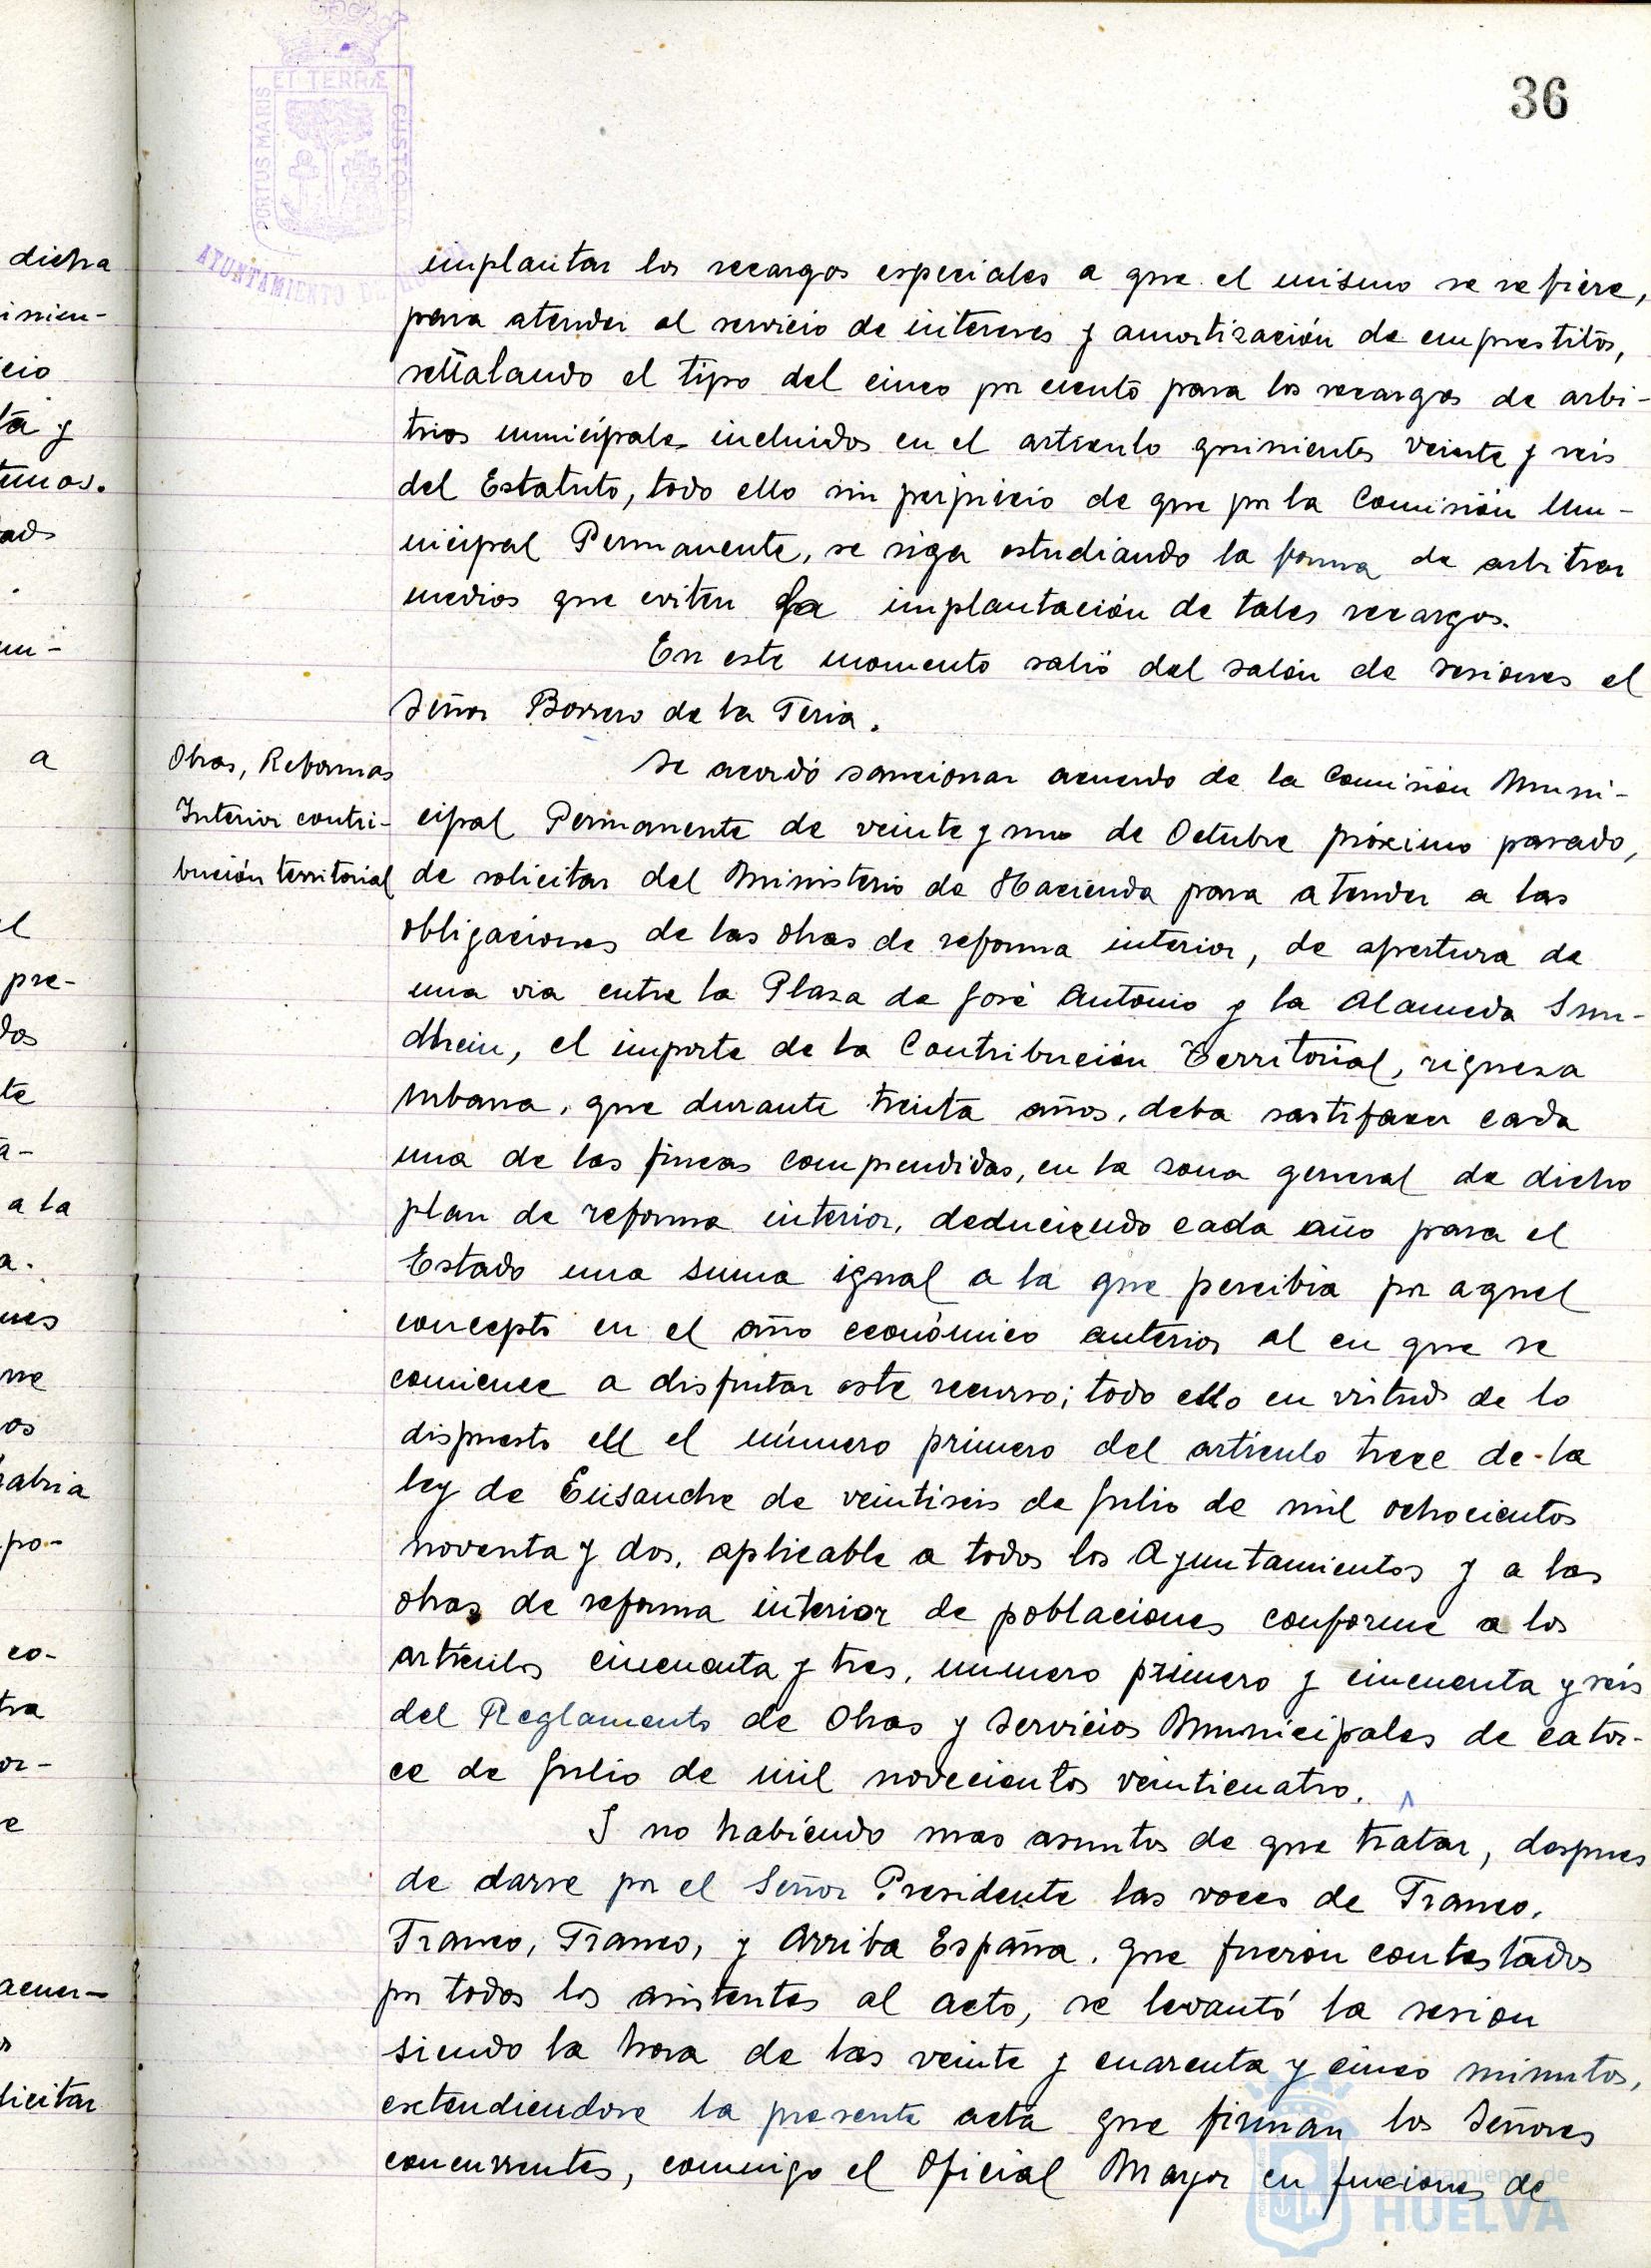 36
PORTUS MARIS ET TERRÆ CUSTODIA
AYUNTAMIENTO DE HUELVA
implantar los recargos especiales a que el mismo se refiere,
para atender al servicio de intereses y amortización de emprestitos,
señalando el tipo del cinco por ciento para los recargos de arbi-
trios municipales incluidos en el artículo quinientos veinte y seis
del Estatuto, todo ello sin perjuicio de que por la Comisión Mu-
nicipal Permanente, se siga estudiando la forma de arbitrar
medios que eviten la implantación de tales recargos.
En este momento salió del salón de sesiones el
Señor Borrero de la Feria.
Obras, Reformas
Interior contri-
bución territorial
Se acordó sancionar acuerdo de la Comisión Muni-
cipal Permanente de veinte y uno de Octubre próximo pasado,
de solicitar del Ministerio de Hacienda para atender a las
obligaciones de las obras de reforma interior, de apertura de
una via entre la Plaza de José Antonio y la Alameda Sun-
dhein, el importe de la Contribución Territorial, riqueza
urbana, que durante treinta años, deba sastifacer cada
una de las fincas comprendidas, en la zona general de dicho
plan de reforma interior, deduciendo cada año para el
Estado una suma igual a la que percibia por aquel
concepto en el año económico anterior al en que se
comience a disfrutar este recurso; todo ello en virtud de lo
dispuesto en el número primero del artículo trece de la
ley de Ensanche de veintiseis de Julio de mil ochocientos
noventa y dos, aplicable a todos los Ayuntamientos y a las
obras de reforma interior de poblaciones conforme a los
artículos cincuenta y tres, numero primero y cincuenta y seis
del Reglamento de Obras y Servicios Municipales de cator-
ce de Julio de mil novecientos veinticuatro.
Y no habiendo mas asuntos de que tratar, despues
de darse por el Señor Presidente las voces de Franco,
Franco, Franco, y Arriba España, que fueron contestados
por todos los asistentes al acto, se levantó la sesion
siendo la hora de las veinte y cuarenta y cinco minutos,
extendiendose la presente acta que firman los Señores
concurrentes, conmigo el Oficial Mayor en funciones de
Ayuntamiento de
HUELVA
dicha
cio
ta y
a
el
pre-
dos
te
a la
a.
po-
co-
tra
or-
e
acuer-
licitar